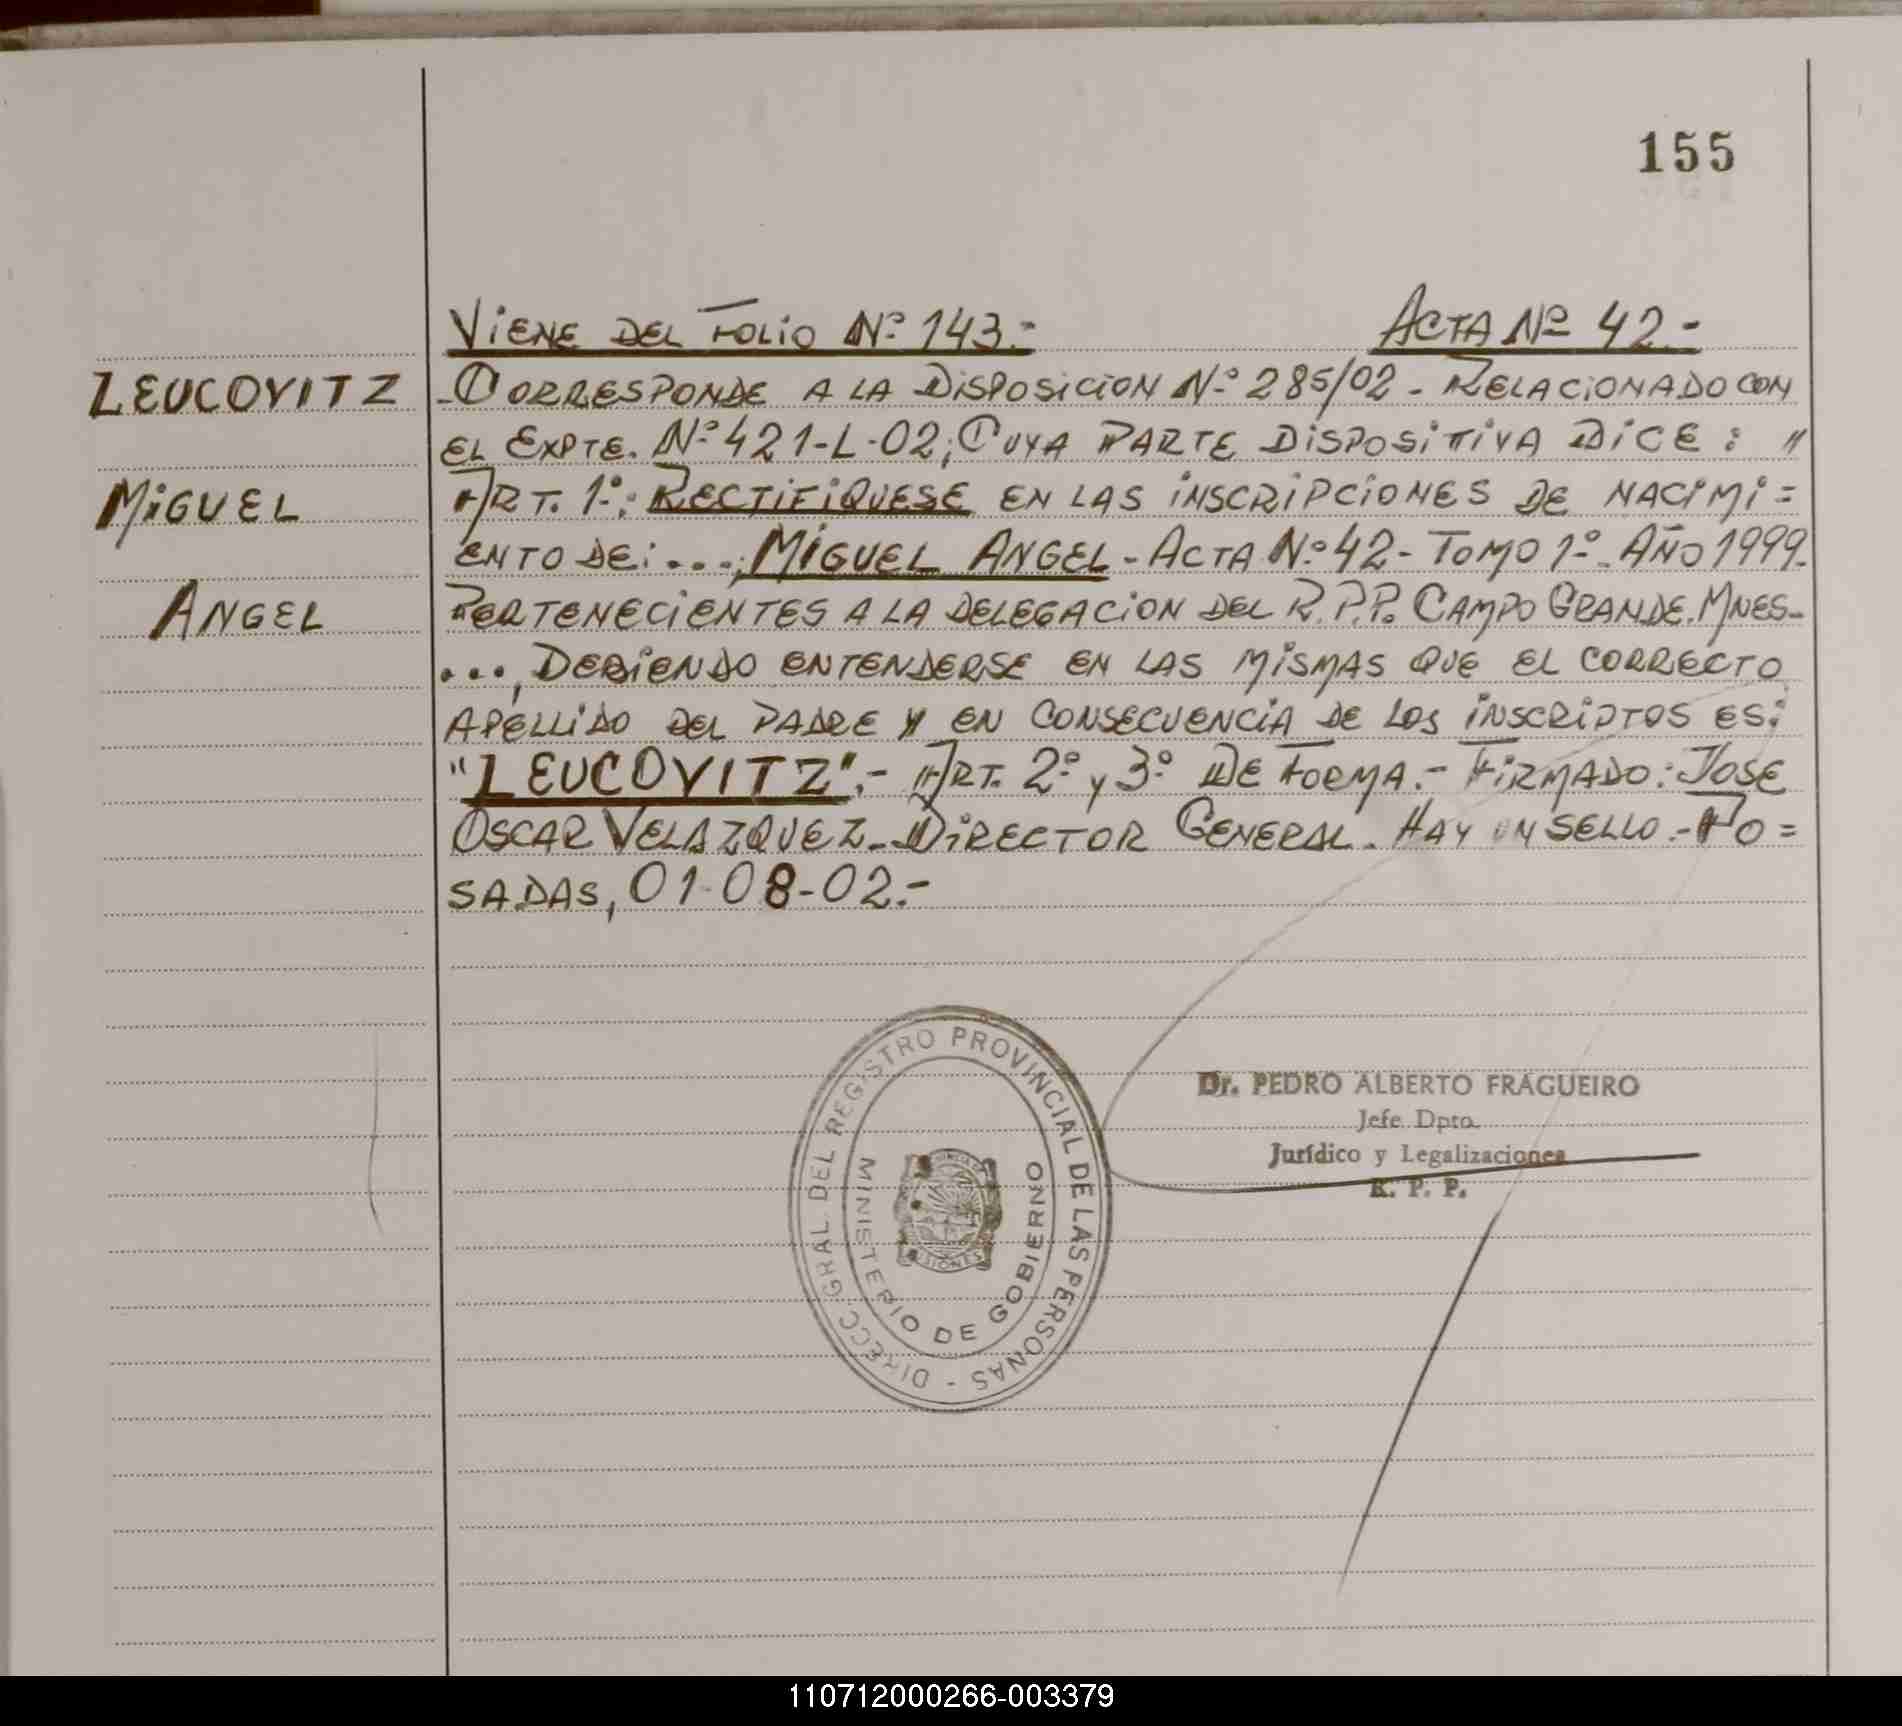 155
VIENE DEL FOLIO Nº 143.- ACTA Nº 42.-
LEUCOVITZ
MIGUEL
ANGEL
-CORRESPONDE A LA DISPOSICION Nº 285/02 - RELACIONADO CON
EL EXPTE. Nº 421-L-02; CUYA PARTE DISPOSITIVA DICE: "
ART. 1º: RECTIFIQUESE EN LAS INSCRIPCIONES DE NACIMI=
ENTO DE: ...; MIGUEL ANGEL - ACTA Nº 42 - TOMO 1º - AÑO 1999.
PERTENECIENTES A LA DELEGACION DEL R.P.P. CAMPO GRANDE. MNES-
..., DEBIENDO ENTENDERSE EN LAS MISMAS QUE EL CORRECTO
APELLIDO DEL PADRE Y EN CONSECUENCIA DE LOS INSCRIPTOS ES:
"LEUCOVITZ".- ART. 2º y 3º DE FORMA.- FIRMADO: JOSE
OSCAR VELAZQUEZ - DIRECTOR GENERAL. HAY UN SELLO.- PO=
SADAS, 01-08-02.-
DIRECC. GRAL. DEL REGISTRO PROVINCIAL DE LAS PERSONAS -
MINISTERIO DE GOBIERNO
MISIONES
Dr. PEDRO ALBERTO FRAGUEIRO
Jefe Dpto.
Jurídico y Legalizaciones
R. P. P.
110712000266-003379